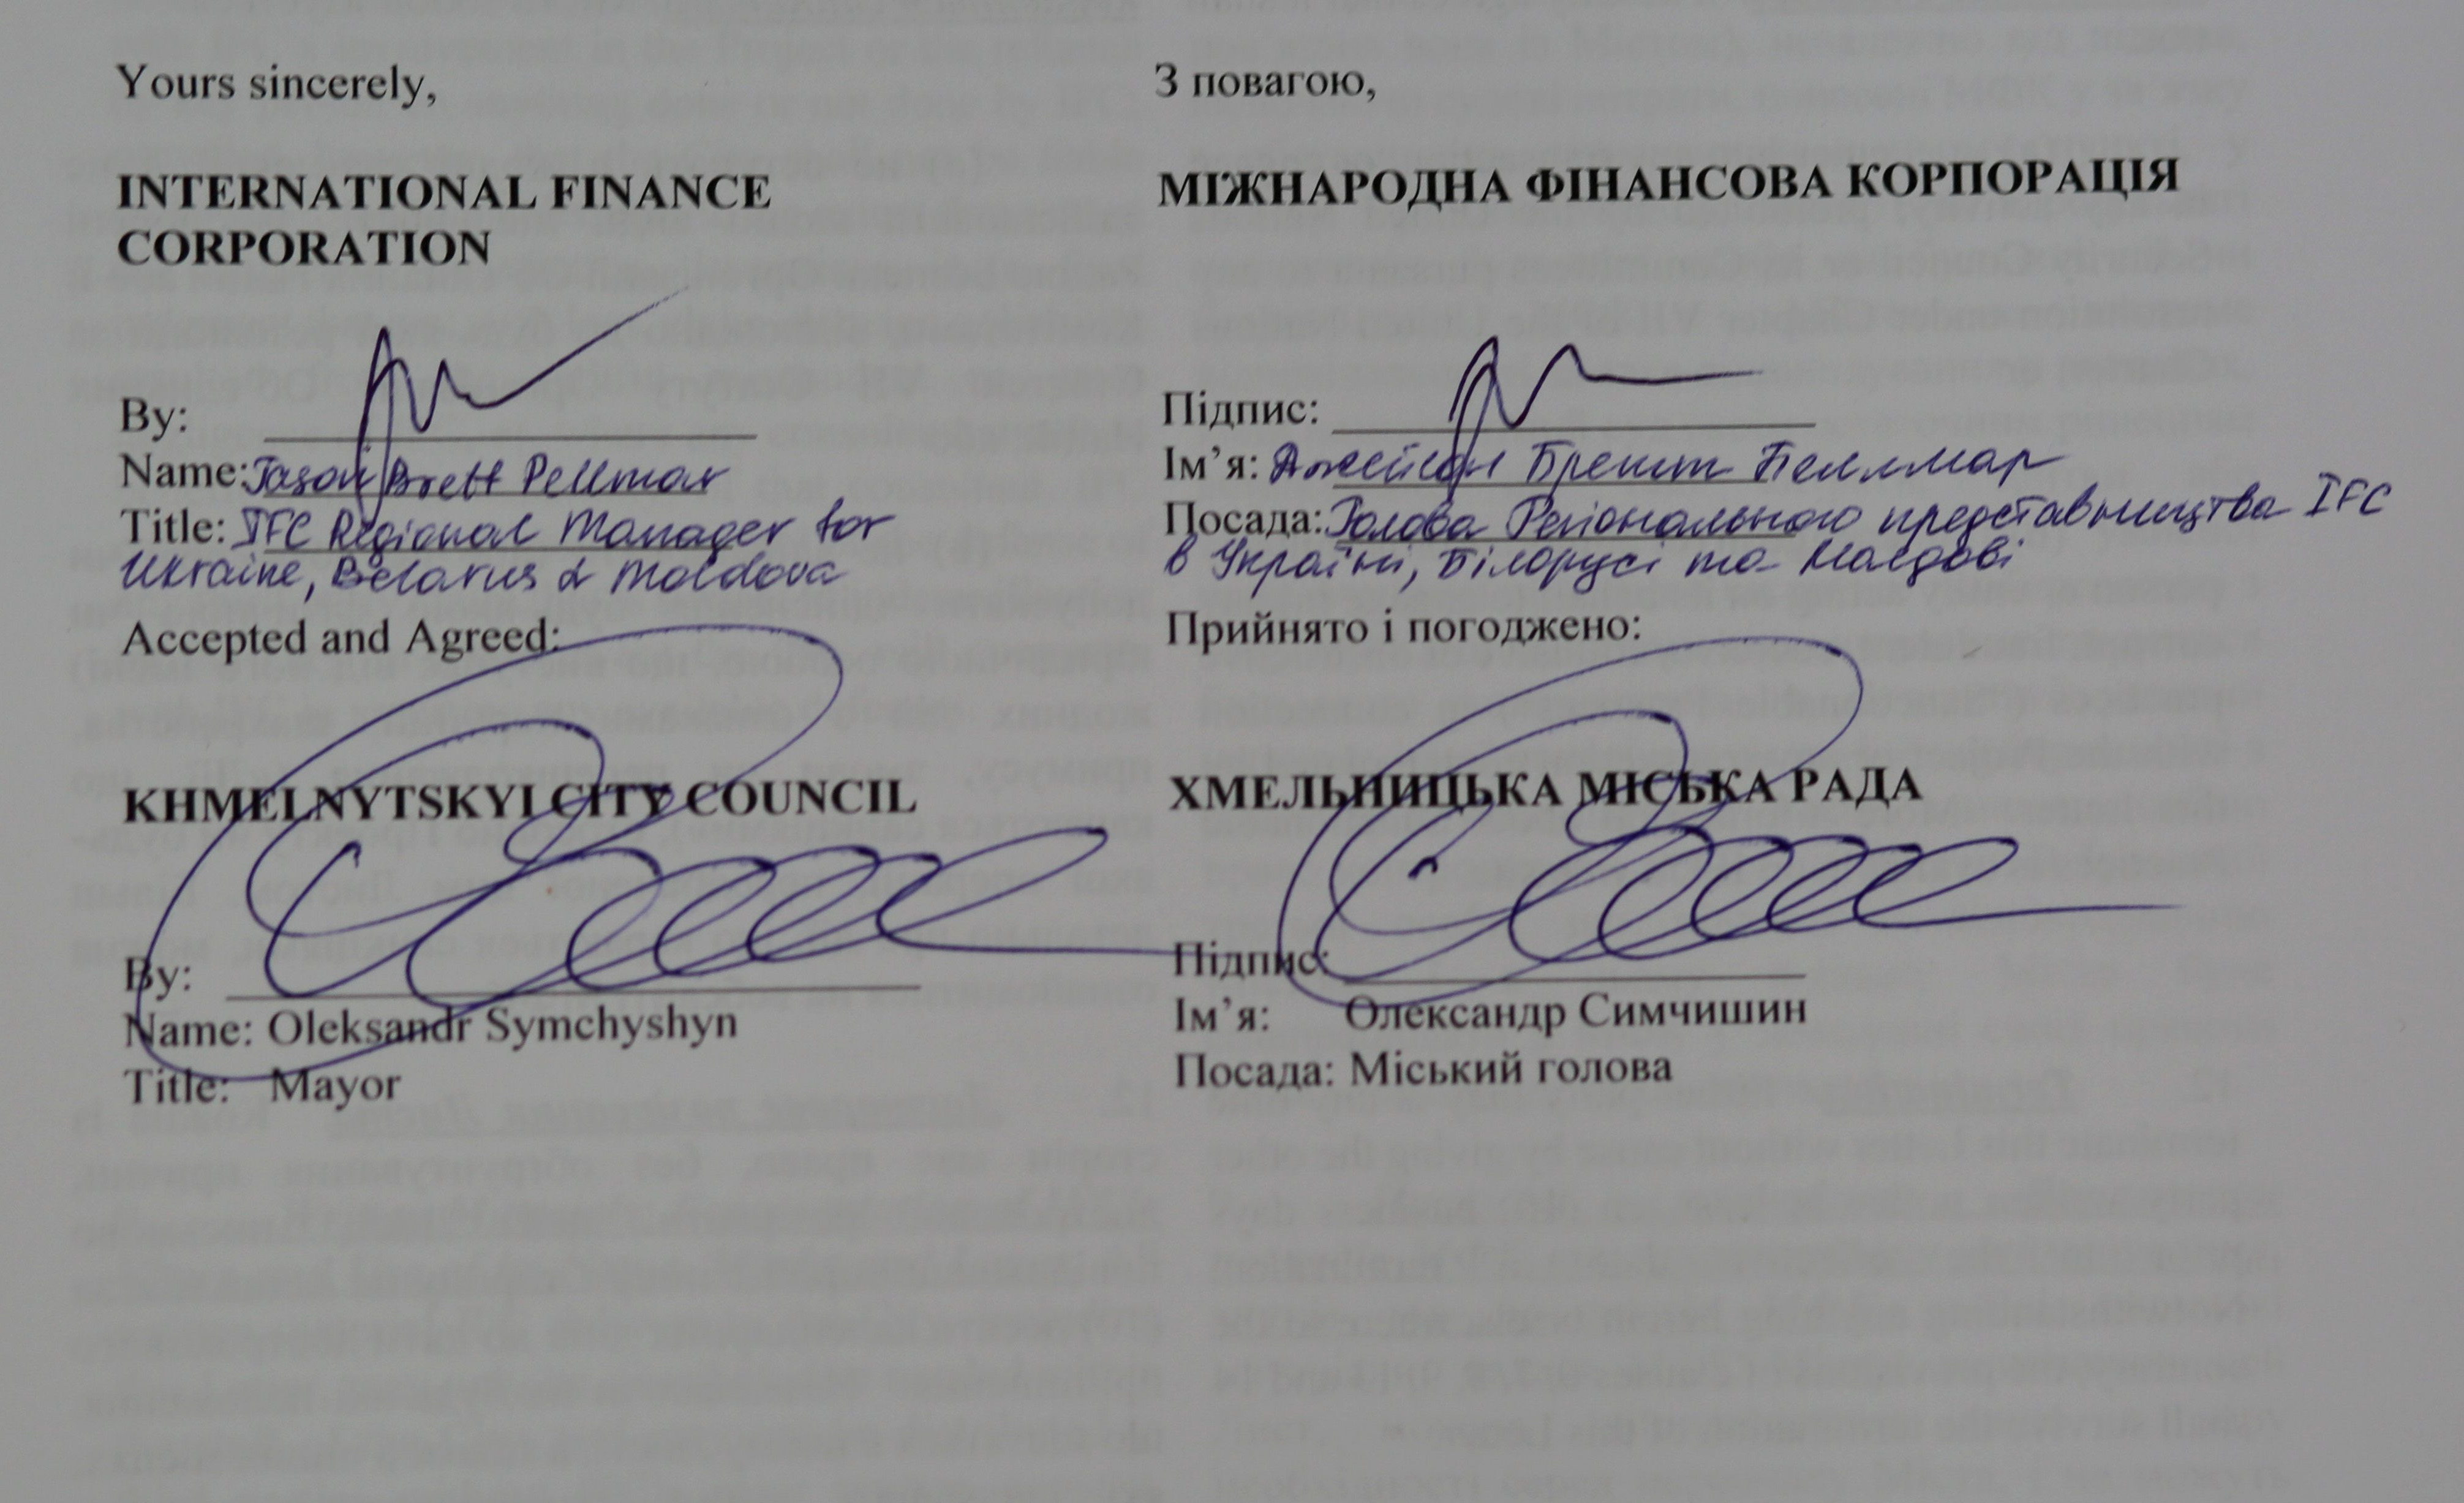 Yours sincerely,
INTERNATIONAL FINANCE
CORPORATION
By:
Name: Jason Brett Pellmar
Title: IFC Regional Manager for
Ukraine, Belarus & Moldova
Accepted and Agreed:
KHMELNYTSKYI CITY COUNCIL
By:
Name: Oleksandr Symchyshyn
Title: Mayor
З повагою,
МІЖНАРОДНА ФІНАНСОВА КОРПОРАЦІЯ
Підпис:
Ім’я: Джейсон Бретт Пеллмар
Посада: Голова Регіонального представництва IFC
в Україні, Білорусі та Молдові
Прийнято і погоджено:
ХМЕЛЬНИЦЬКА МІСЬКА РАДА
Підпис:
Ім’я: Олександр Симчишин
Посада: Міський голова